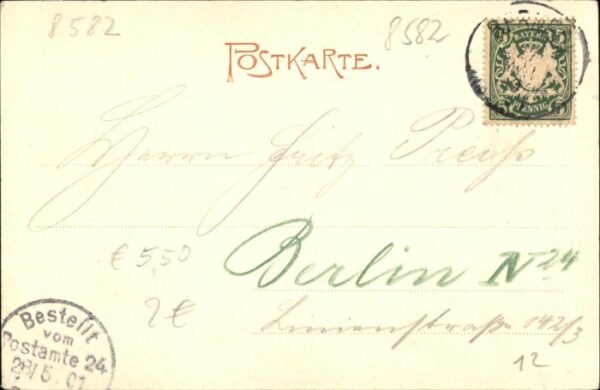 8582
8582
POSTKARTE.
BAYERN
5 5
PFENNIG
Herrn Fritz Preuß
€ 5,50
Berlin N 24
2 €
Linienstraße 142/3
Bestellt
vom
Postamte 24.
28/5. 01
12